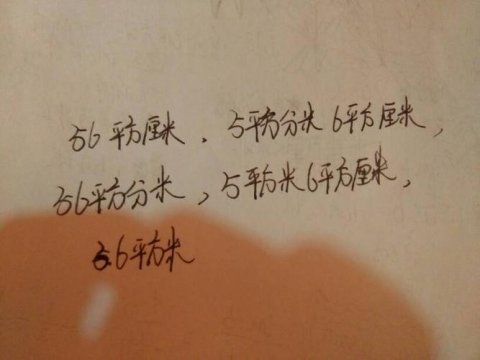 56平方厘米、5平方分米6平方厘米，
56平方分米，5平方米6平方厘米，
5.6平方米